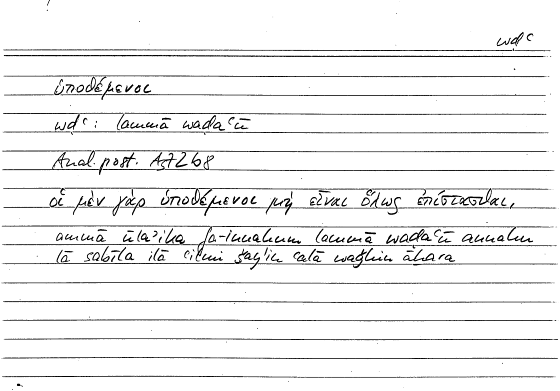 wdʿ
ὑποθέμενοι
wdʿ: lammā waḍaʿū
Anal. post. A3 72b8
οἱ μὲν γὰρ ὑποθέμενοι μὴ εἶναι ὅλως ἐπίστασθαι,
ammā ūlaʾika fa-innahum lammā waḍaʿū annahu
lā sabīla ilā ʿilmi šayʾin ʿalā waǧhin āḫara